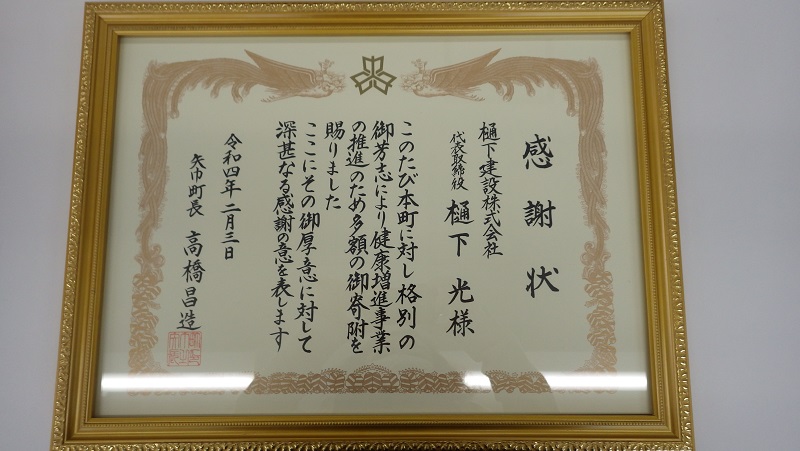 感謝状
樋下建設株式会社
代表取締役 樋下光様
このたび本町に対し格別の
御芳志により健康増進事業
の推進のため多額の御寄附を
賜りました
ここにその御厚意に対して
深甚なる感謝の意を表します
令和四年二月三日
矢巾町長 高橋昌造